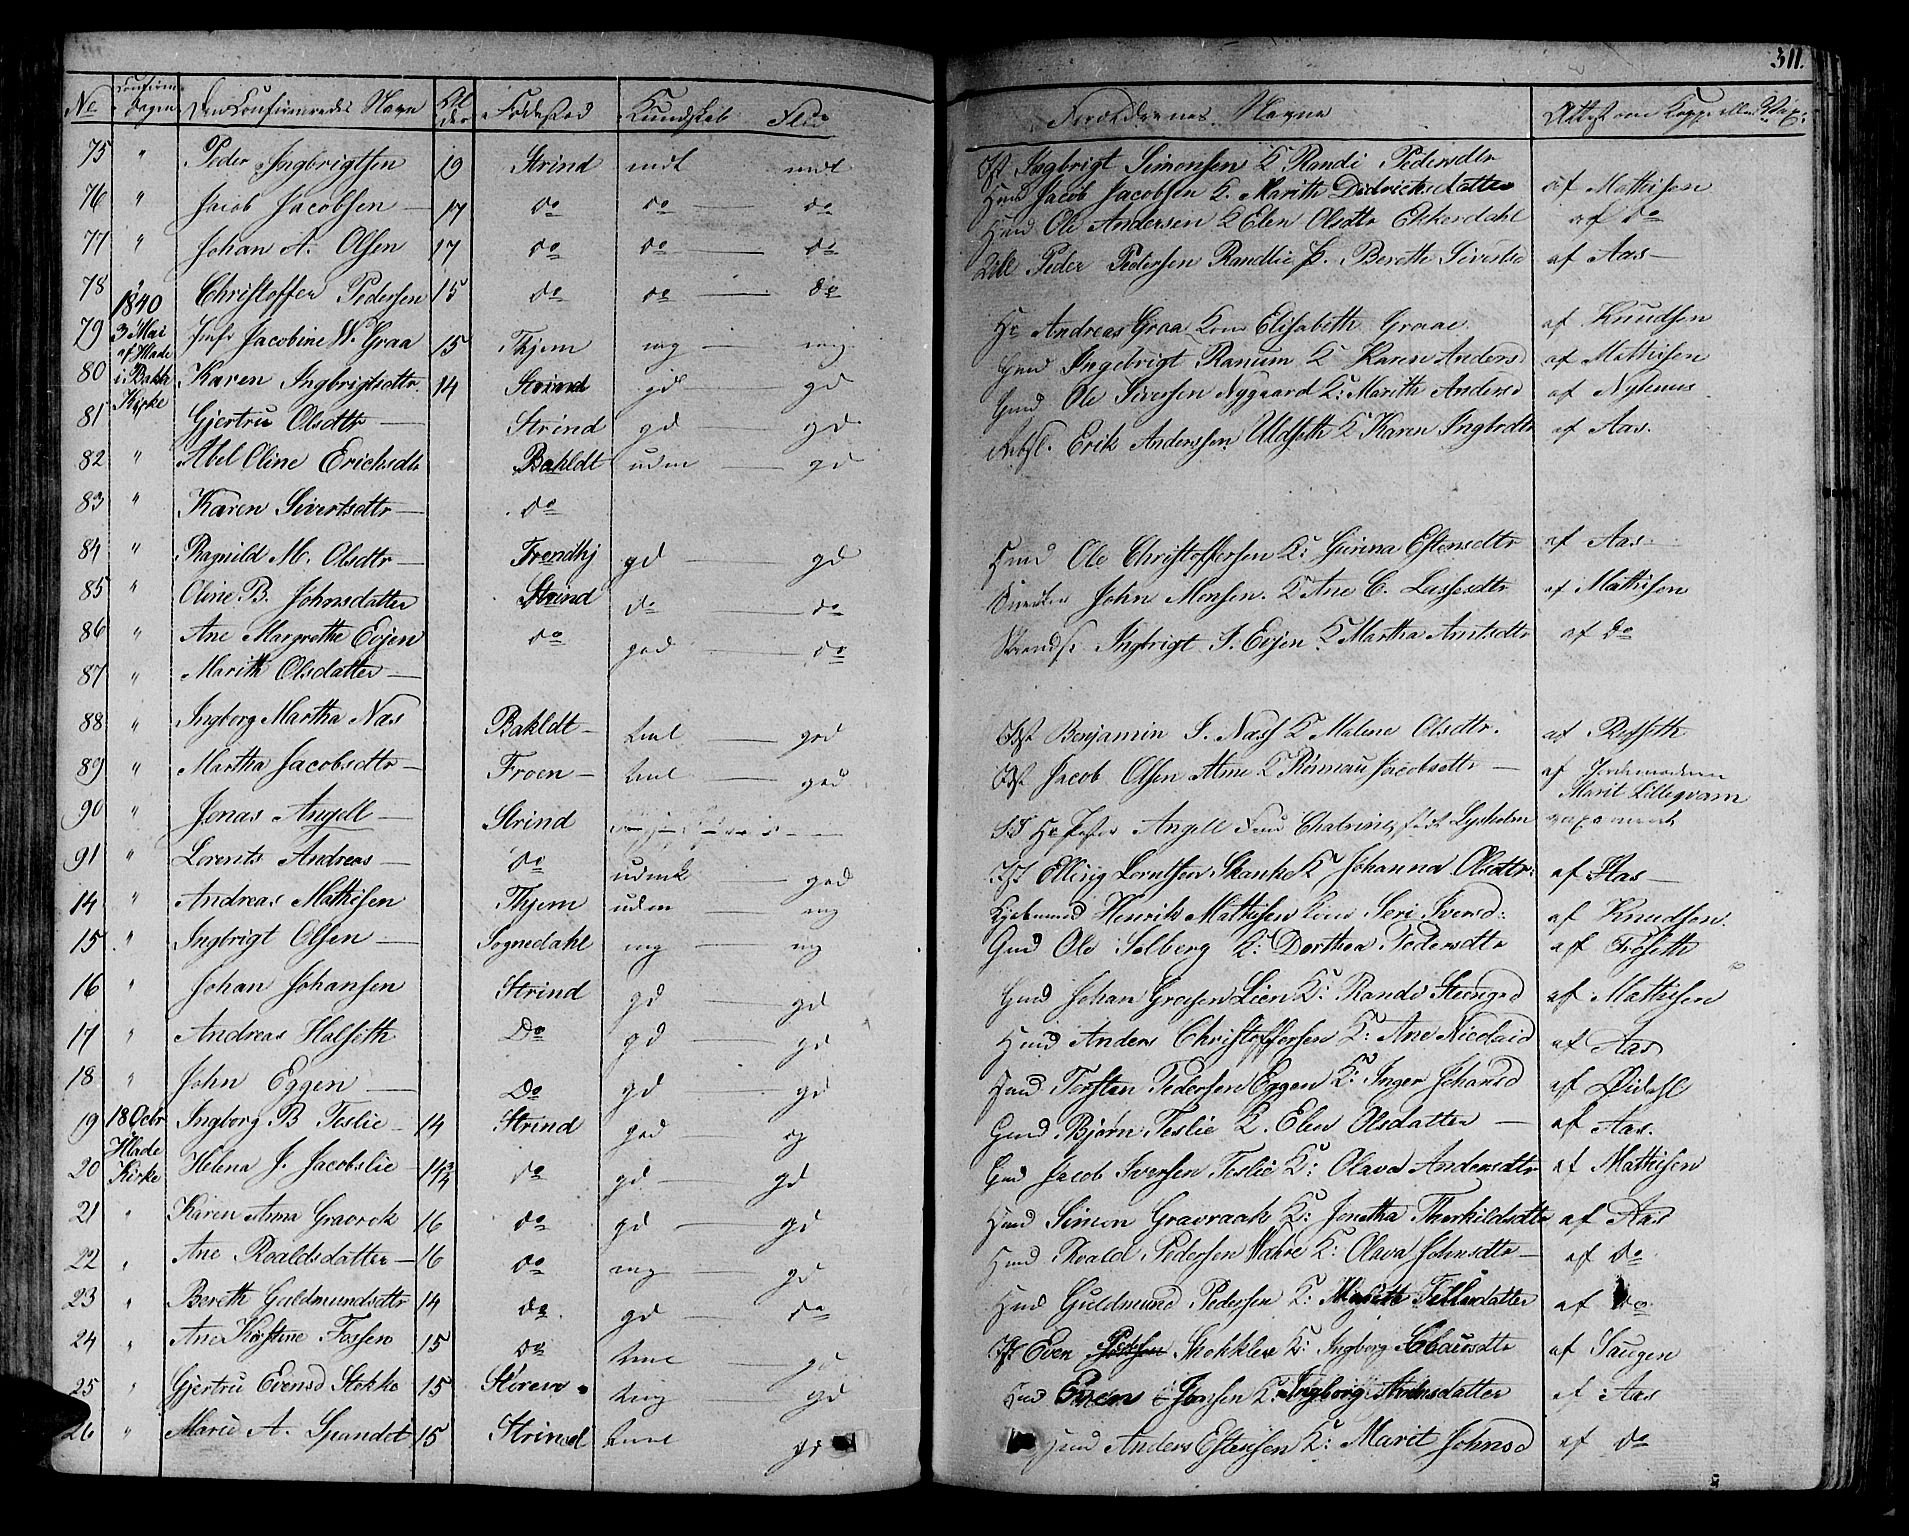 311.
No Confirm. Dagen Den Confirmeredes Navn Alder Fødested Kundskab Flid Forældrenes Navne Attest om Kopper
75 " Peder Ingbrigtsen 19 Strind mdt mdt Ingbrigt Simonsen K Randi Pedersdtr
76 " Jacob Jacobsen — 17 do do — do Huusmd Jacob Jacobsen K. Marith Didrichsdatter af Mathisen
77 " Johan A. Olsen 17 do do — do Ole Andersen K Elen Olsdtr Ekkerdahl af do
78 " Christoffer Pedersen 15 do do — do Peder Pedersen Randlie P. Berethe Sivertsd af Aas —
1840
79 3 Mai Jmfr Jacobine W. Graa 15 Thjem mg — mg Hr Andreas Graa Kone Elisabeth Graae. af Knudsen
af Hlade
80 i Bakk Karen Ingbrigtsdtr. 14 Strind gd — gd Gmd Ingebrigt Ranum K Karen Andersd af Mathisen
Kirke
81 Gjertru Olsdtr — Strind gd — gd Gmd Ole Iversen Nygaard K: Marith Andersd af Nyhuus
82 " Abel Oline Erichsdtr Bakldt udm — gd Erik Anderssen Uldseth K Karen Ingbrdtr af Aas.
83 " Karen Sivertsdtr — do
84 " Ragnild M. Olsdtr — Trondhj gd — gd Hmd Ole Christoffersen K: Gurina Estensdtr af Aas —
85 " Oline B. Johnsdatter Strind do — do John Monsen. K Ane C. Lassesdtr af Mathison
86 " Ane Margrethe Evjen do god — do Ingbrigt J. Evjen K Martha Arntsdtr af do
87 " Marith Olsdatter —
88 " Ingborg Martha Næs Bakldt — god Benjamin J. Næss K Malene Olsdtr. af Rosseth
89 " Martha Jacobsdtr — Froen — god Jacob Olsen K Rønnau Jacobsdtr — af Jordemoderen
Marit Lillegvam
90 " Jonas Angell — Strind Hr Angell Fru Chatrine, født Lysholm
91 " Lorents Andreas — do udmk — god Elling Lorntsen Skanke K Johanna Olsdtr: af Aas —
14 " Andreas Mathisen Thjem udm — mg Henrik Mathisen Kone Seri Iversd: af Knudsen.
15 " Ingbrigt Olsen — Sognedahl mg — mg Gmd Ole Solberg K: Dorthea Pedersdtr af Froseth
16 " Johan Johansen Strind gd — gd Gmd Johan Lien K: Randi Steengrd af Mathisen
17 " Andreas Halseth Do gd — gd Hmd Anders Christoffersen K: Ane Nicolaid af Aas
18 " John Eggen — Do gd — gd Hmd Torsten Pedersen Eggen K: Inger Johansd af Øidahl
19 18 Octbr Ingborg B Teslie — 14 Strind god — g Gmd Bjørn Teslie K. Elen Olsdatter — af Aas.
Hlade
20 Kirke Helena J. Jacobslie — 14¾ do gd — gd Gmd Jacob Iversen Teslie K: Olava Andersdtr af Mathisen
21 " Karen Anna Gravrok 16 do gd — gd Hmd Simon Gravraak K: Jonetha Therkildsdtr af Aas
22 " Ane Roaldsdatter — 16 do mg — gd Hmd Roald Pedersen K: Olava Johnsdtr — af do
23 " Bereth Guldmundsdtr 14 do gd — do Hmd Guldmund Pedersen K: Marith Tillerdatter af do
24 " Ane Kirstine Fossen 15 do — gd Even Stokklen K: Ingborg Clausdtr af Saugen
25 " Gjertru Evensd Stokke 15 Støren — gd Hmd Even Jonsen K: Ingborg Arntsdatter af Aas
26 " Marie A. Spandet 15 Strind — gd Hmd Anders Estensen K: Marit Johnsd af do